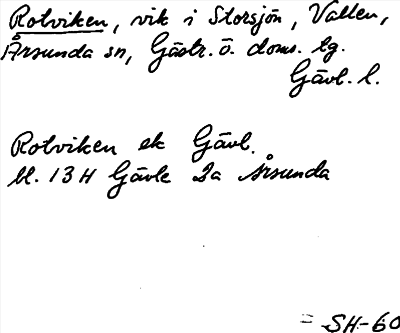 Rotviken, vik i Storsjön, Vallen,
Årsunda sn, Gästr. ö. doms. tg.
Gävl. l.
Rotviken ek Gävl.
bl. 13 H Gävle 2a Årsunda
= SH-60